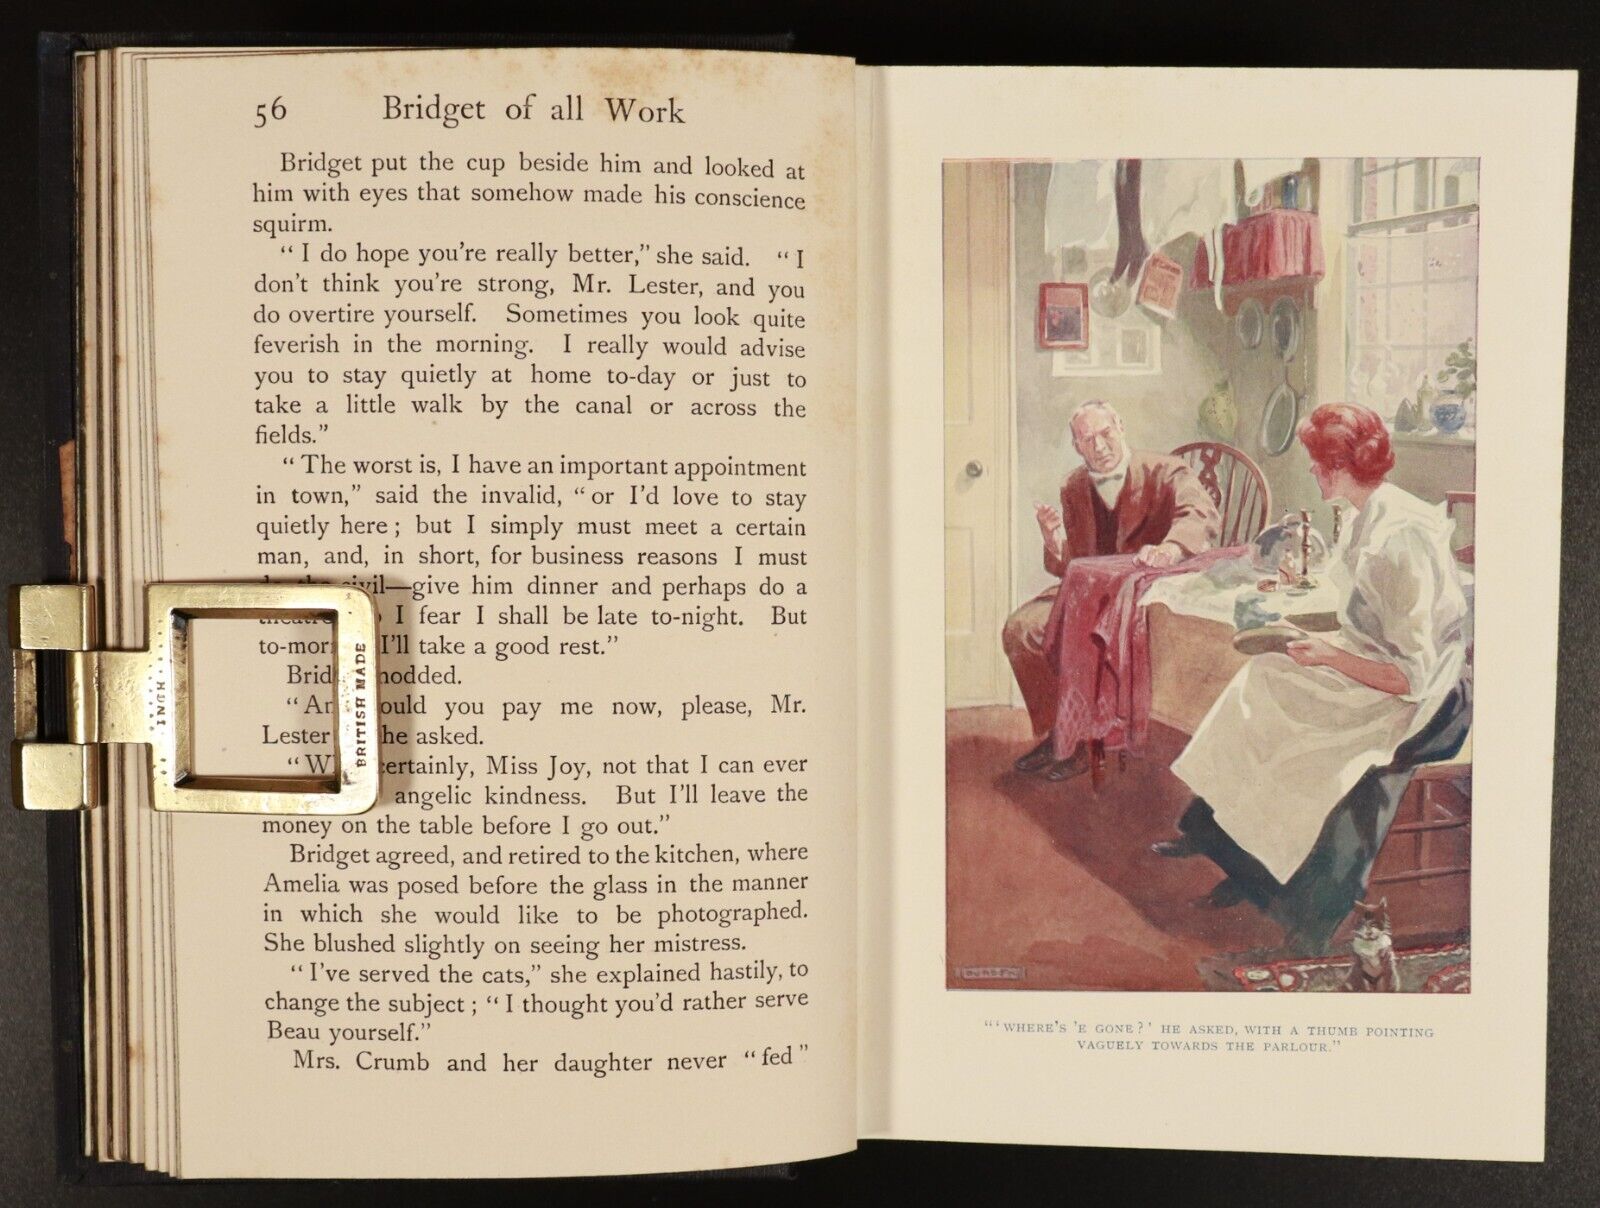 56 Bridget of all Work
Bridget put the cup beside him and looked at
him with eyes that somehow made his conscience
squirm.
“ I do hope you’re really better,” she said. “ I
don’t think you’re strong, Mr. Lester, and you
do overtire yourself. Sometimes you look quite
feverish in the morning. I really would advise
you to stay quietly at home to-day or just to
take a little walk by the canal or across the
fields.”
“ The worst is, I have an important appointment
in town,” said the invalid, “ or I’d love to stay
quietly here ; but I simply must meet a certain
man, and, in short, for business reasons I must
civil—give him dinner and perhaps do a
I fear I shall be late to-night. But
I’ll take a good rest.”
nodded.
you pay me now, please, Mr.
Lester he asked.
certainly, Miss Joy, not that I can ever
angelic kindness. But I’ll leave the
money on the table before I go out.”
Bridget agreed, and retired to the kitchen, where
Amelia was posed before the glass in the manner
in which she would like to be photographed.
She blushed slightly on seeing her mistress.
“ I’ve served the cats,” she explained hastily, to
change the subject ; “ I thought you’d rather serve
Beau yourself.”
Mrs. Crumb and her daughter never “ fed ”
HUNT
BRITISH MADE
DURDEN
“‘ WHERE’S ’E GONE ? ’ HE ASKED, WITH A THUMB POINTING
VAGUELY TOWARDS THE PARLOUR.”